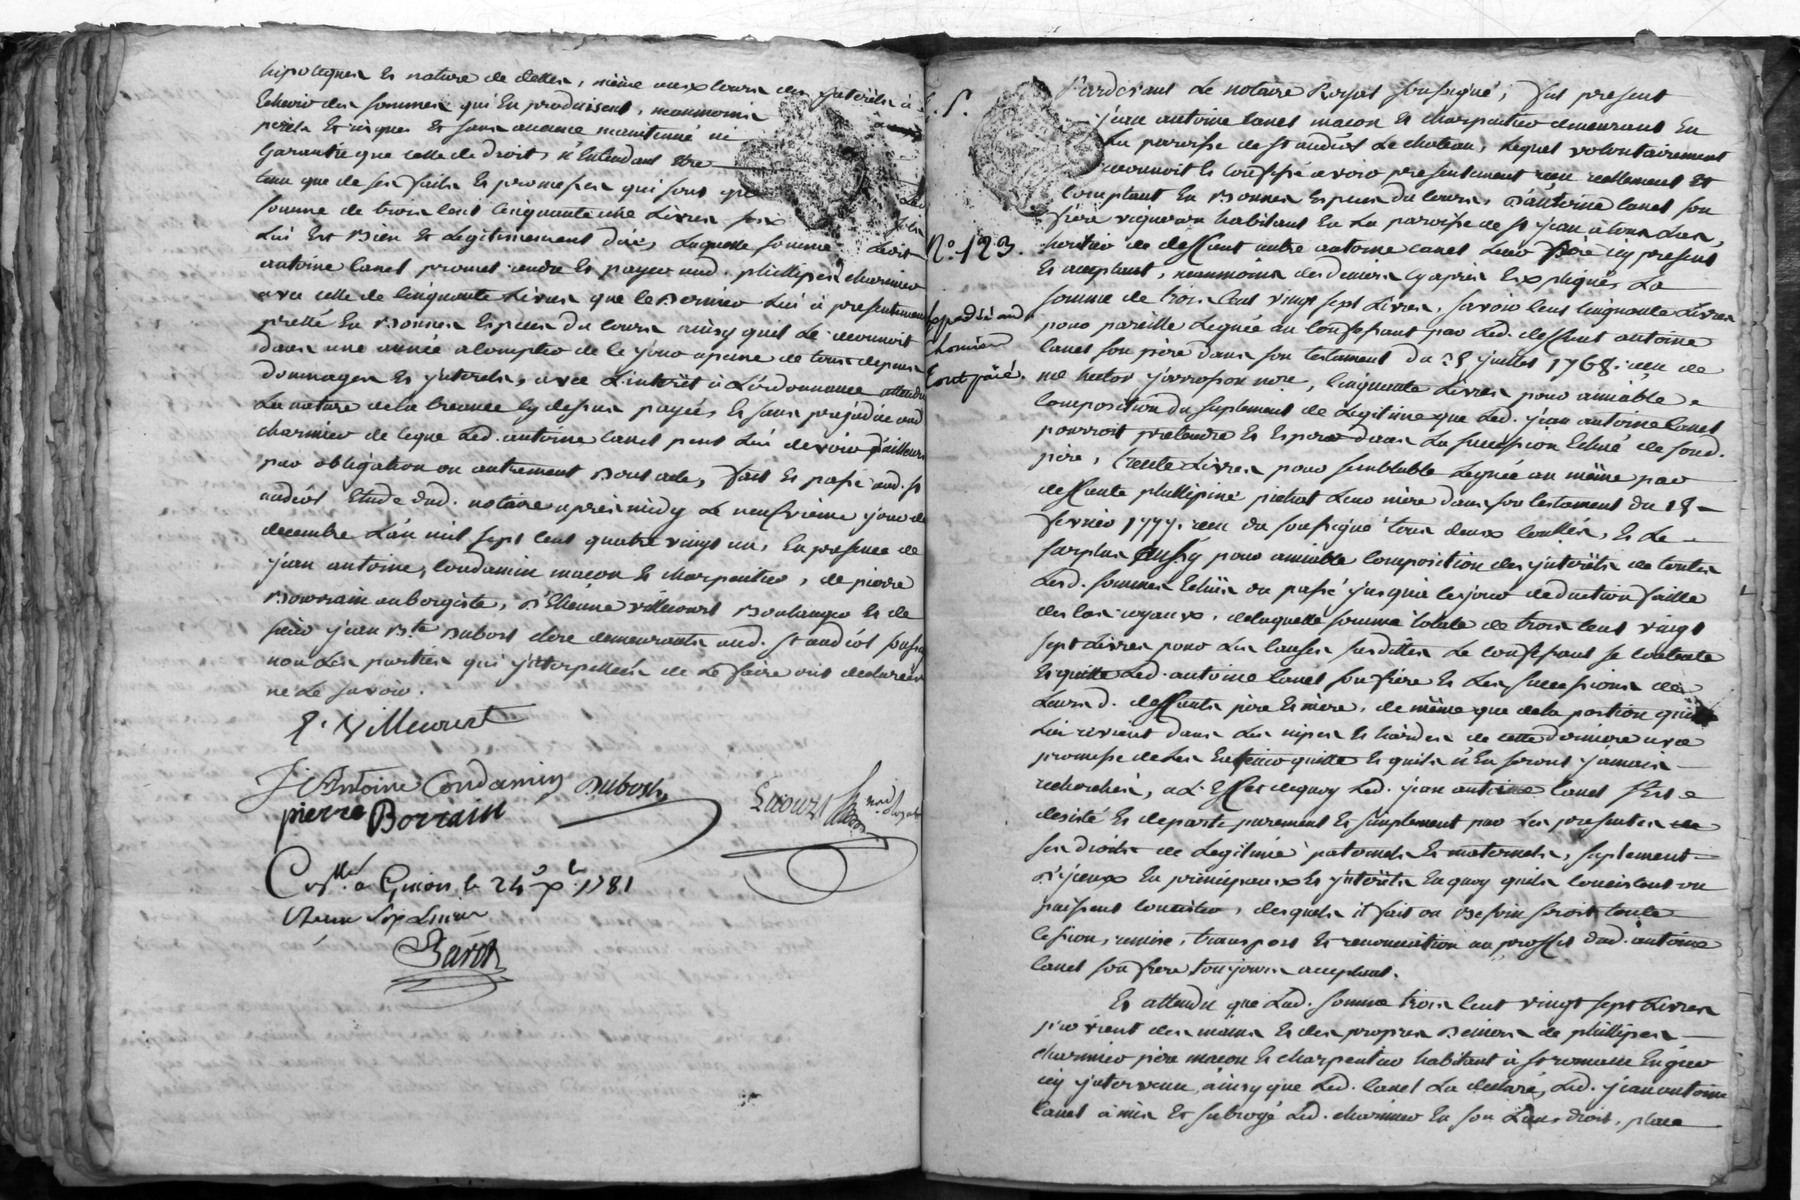 hipoteques et nature de dettes, même aux cours des interêts à
Echeoir des sommes qui En produisent, neanmoins
perils Et risques Et sans aucune maintenue ni
Garantie que celle de droit, n'Entendant être
tenu que de ses faits Et promesses qui sont que
somme de trois Cent Cinquante une Livres
Lui Est Bien Et Legitimement düe, Laquelle somme Ledit
antoine Canet promet rendre Et payer aud. phillipes charmier
avec celle de Cinquante Livres que le Dernier Lui à presentement
pretté En Bonnes Especes du cours ainsy quel Le reconnoit
Dans une année a Compter de Ce jour apeine de tous depens
Dommages Et ynterets, avec L'interêt à L'ordonnance attendu
La nature de la Creance cy dessus payées Et sans prejudice aud
charmier de ceque Led. antoine Canet peut Lui devoir d'ailleurs
par obligation ou autrement Dont acte, fait Et passé aud. St
andéol Etude dud. notaire après midy Le neufvieme jour de
decembre L'an mil sept Cent quatre vingt un, En presence de
jean antoine Condamin macon Et charpentier, de pierre
Borrain aubergiste, d'Etienne villecourt Boulanger Et de
sieur jean Bte Dubost clerc demeurants aud. St andéol soussignés
non Les parties qui ynterpellées de Le faire ont declarées
ne Le savoir.
E. Villecourt
J. Antoine Condamin Dubost
pierre Borrain
Collé. a Givors le 24 Xbre 1781
Barot
Pardevant Le notaire Royal soussigné, fut present
jean antoine Canet macon Et charpentier demeurant En
La paroisse de St andéol Le chateau, Lequel volontairement
reconnoit Et Confesse avoir presentement reçu reellement Et
Comptant En Bonnes Especes du Cours, D'antoine Canet son
frère vigneron habitant En La paroisse de St jean atoulas,
N.º 123. heritier de deffunt autre antoine Canet Leur Père icy present
Et acceptant, neanmoins des deniers cy apres Expliqués La
Expedié aud somme de trois Cent vingt sept Livres, savoir Cent Cinquante Livres
charmier pour pareille Leguée au Confessant par Led. deffunt antoine
Canet son père dans son testament du 28 juillet 1768. reçu de
tout païé. me hector son noire, Cinquante Livres pour amiable
Composition du suplement de Legitime que Led. jean antoine Canet
pourroit pretendre Et Esperer dans La succession Echüe de sond.
père, trente Livres pour semblable Leguée au même par
deffunte phillipine Leur mère dans son testament du 18
fevrier 1777. reçu du soussigné tous deux Contrôllés, Et Le
surplus aussy pour amiable Composition des ynterêts de toutes
Lesd. sommes Echüs du passé jusqu'à ce jour deduction faitte
des Cas royaux. delaquelle somme totale de trois Cent vingt
sept Livres pour Les Causes susdittes Le Confessant se Contente
Et quitte Led. antoine Canet son frère Et Les successions de
Leursd. deffunts père Et mère, de même que dela portion qui
Lui revient dans Les nipes Et hardes de cette derniere avec
promesse de Les En tenir quitte Et quils n'En seront jamais
recherchés, a L'Effet dequoy Led. jean antoine Canet s'Est
desisté Et departi purement Et simplement par Les presentes de
ses droits de Legitime paternels Et maternels, suplement
d'iceux En principaux Et ynterêts En quoy quils Consistent ou
puissent Consister, desquels il fait ou Besoin seroit toute
Cession, remise, transport Et renonciation au proffit dud. antoine
Canet son frere toujours acceptant.
Et attendu que Lad. somme trois Cent vingt sept Livres
provient des mains Et des propres Deniers de phillipes
charmier père macon Et charpentier habitant à St romain En gier
icy yntervenu, ainsy que Led. Canet La declaré, Led. jean antoine
Canet à mis Et subrogé Led. charmier En son Lieu, droit, place